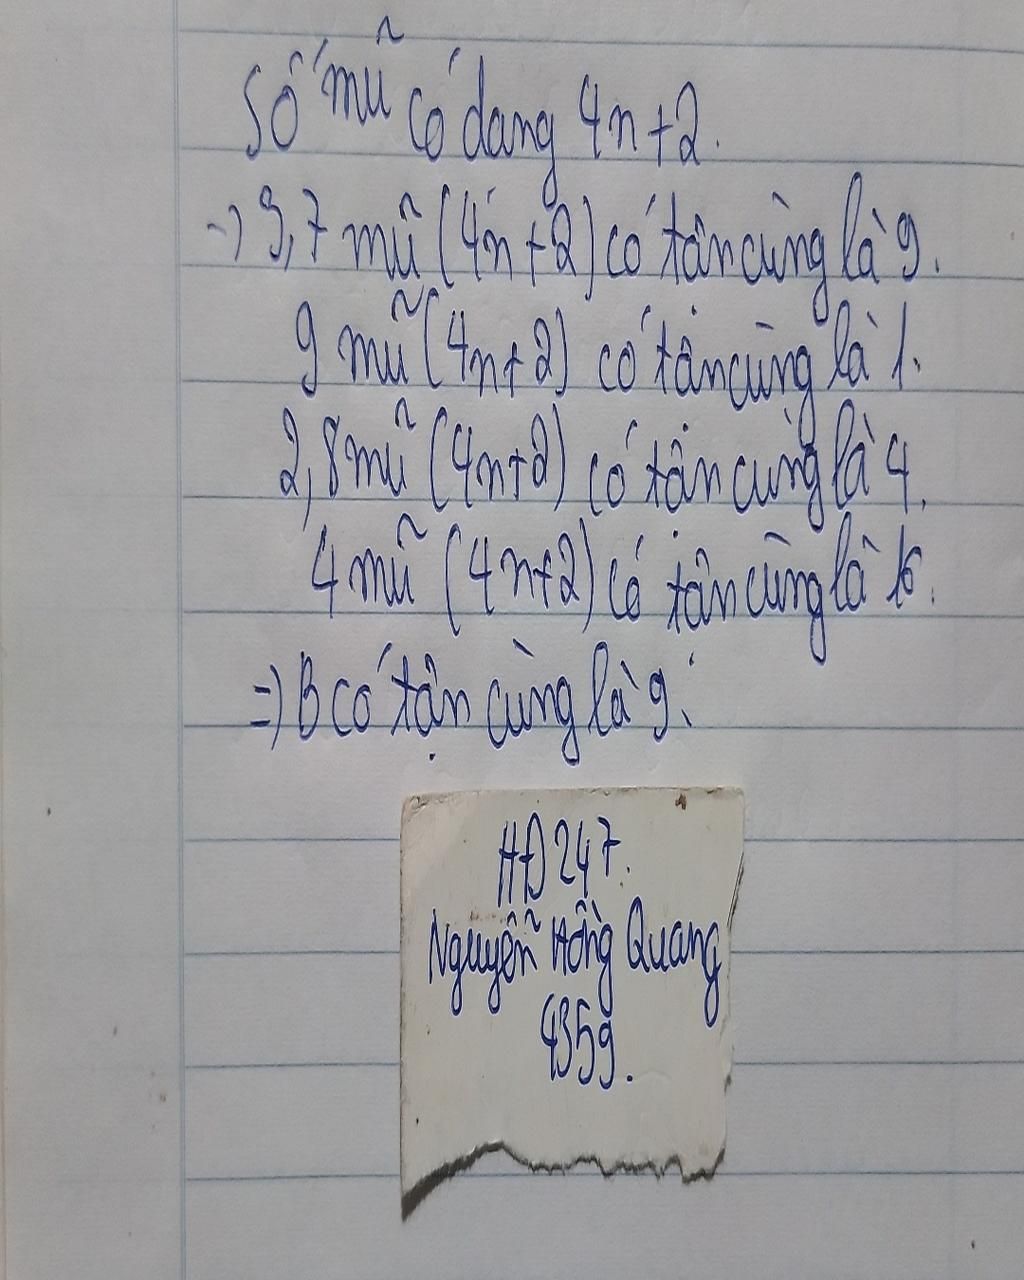 Số mũ có dạng 4n+2.
→ 3,7 mũ (4n+2) có tận cùng là 9.
9 mũ (4n+2) có tận cùng là 1.
2,8 mũ (4n+2) có tận cùng là 4.
4 mũ (4n+2) có tận cùng là 6.
=> B có tận cùng là 9.
HĐ247.
Nguyễn Hồng Quang
4359.